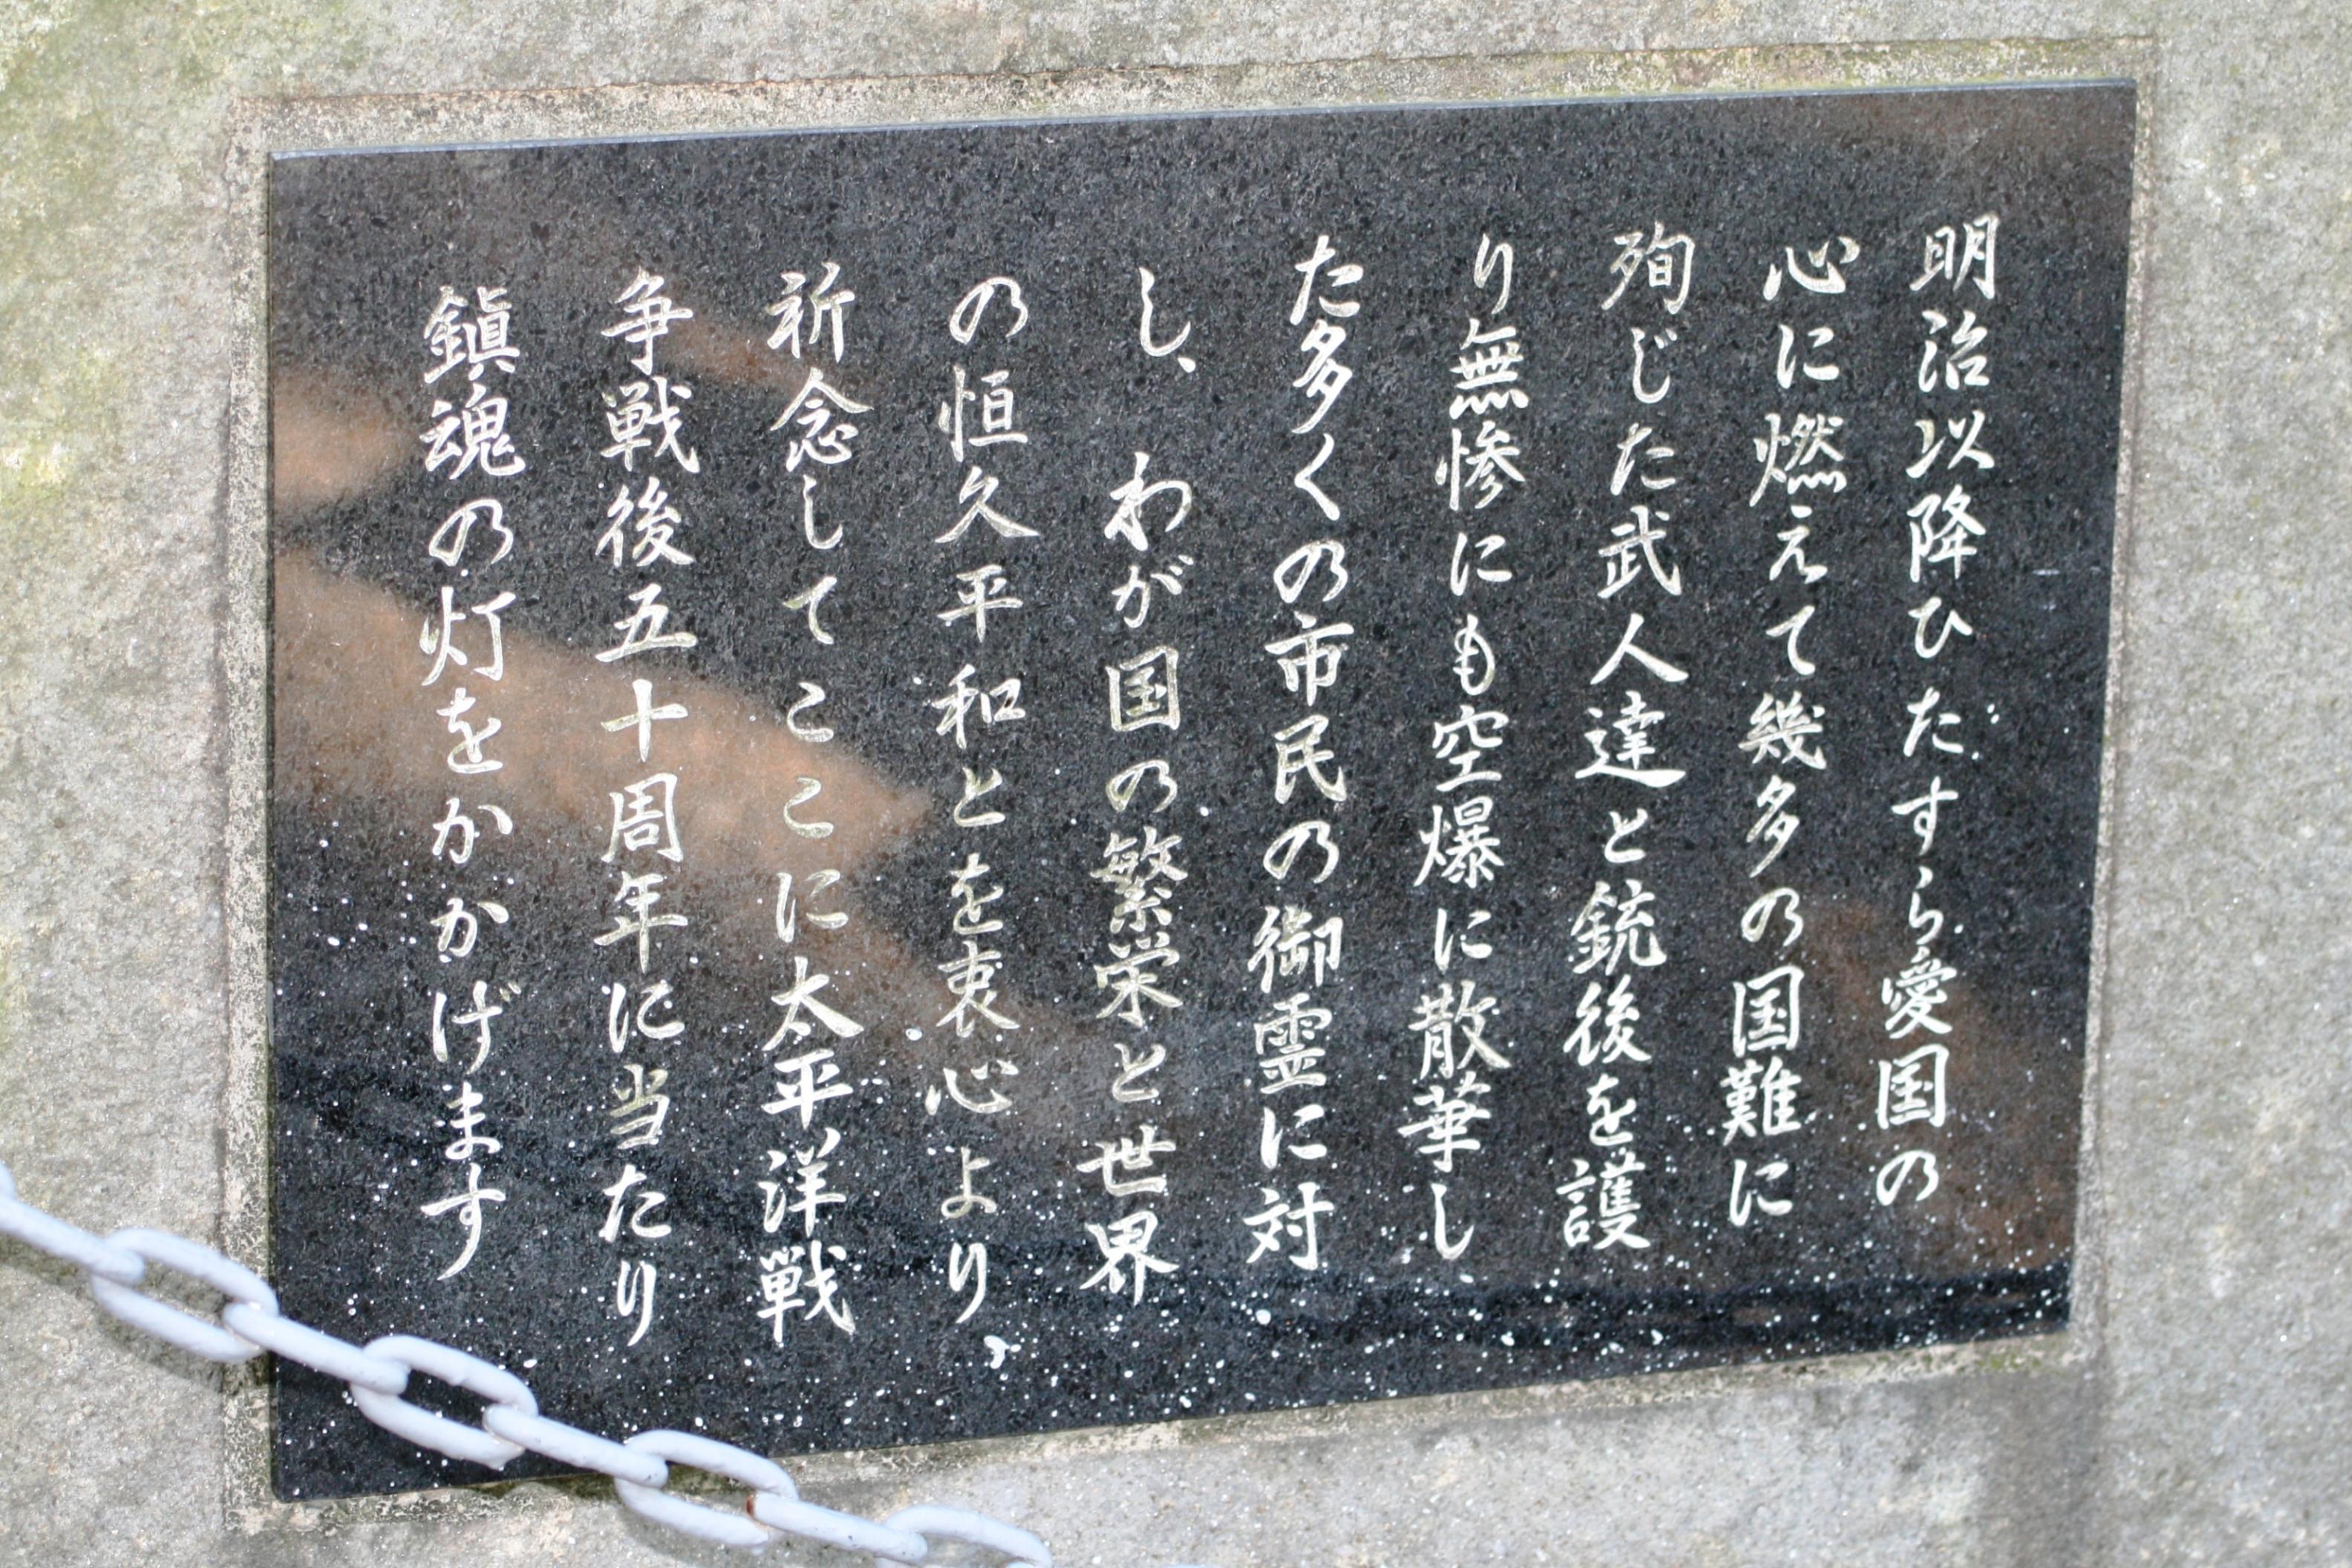 明治以降ひたすら愛国の
心に燃えて幾多の国難に
殉じた武人達と銃後を護
り無惨にも空爆に散華し
た多くの市民の御霊に対
し、わが国の繁栄と世界
の恒久平和とを衷心より
祈念してここに太平洋戦
争戦後五十周年に当たり
鎮魂の灯をかかげます